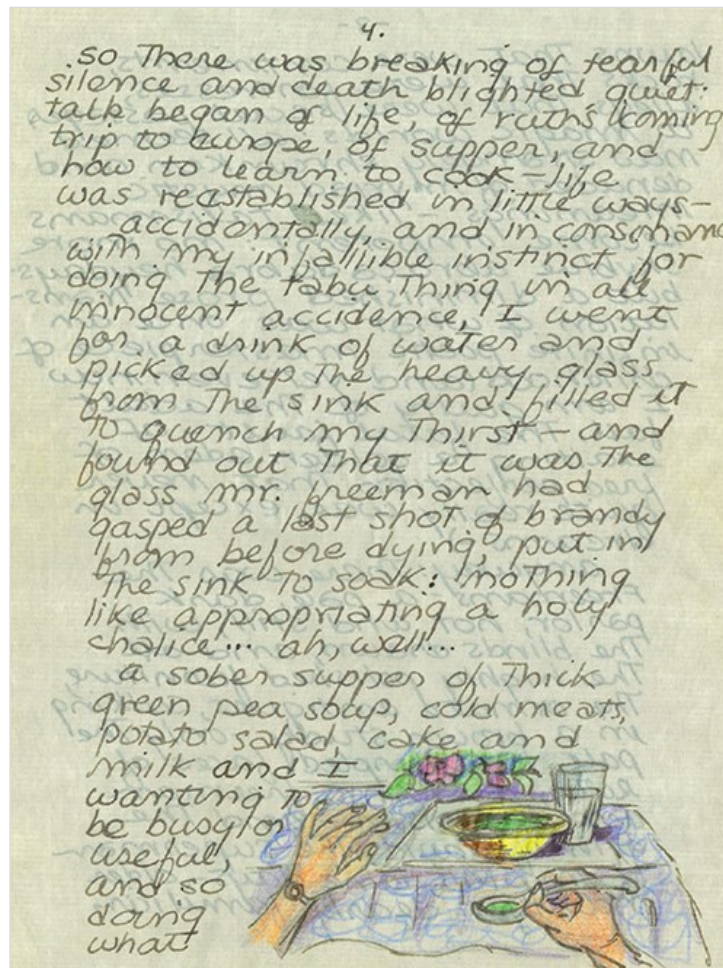 4.
so There was breaking of tearful
silence and death blighted quiet:
talk began of life, of ruth's coming
trip to europe, of supper, and
how to learn to cook – life
was reestablished in little ways –
accidentally, and in consonance
with my infallible instinct for
doing The tabu Thing in all
innocent accidence, I went
for a drink of water and
picked up The heavy glass
from The sink and filled it
to quench my Thirst – and
found out That it was The
glass mr. freeman had
gasped a last shot of brandy
from before dying, put in
The sink to soak: noThing
like appropriating a holy
chalice... ah, well...
a sober supper of Thick
green pea soup, cold meats,
potato salad, cake and
milk and I
wanting to
be busy or
useful,
and so
doing
what